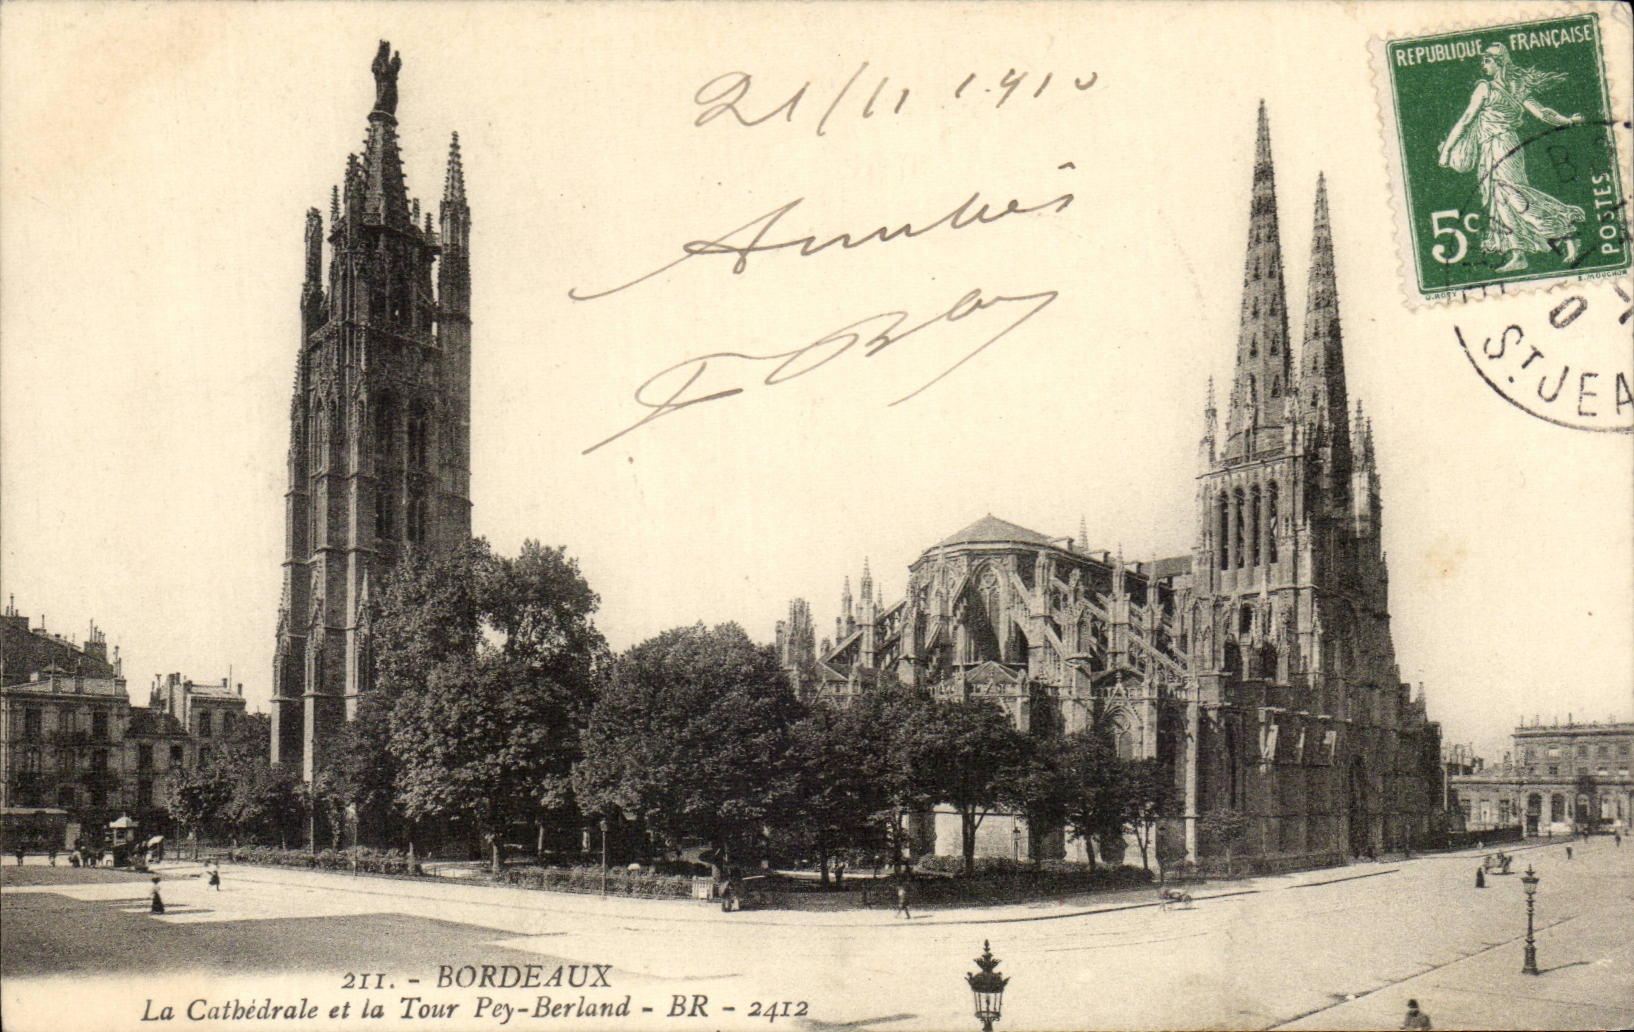 21/11 1910
Amitiés
REPUBLIQUE FRANÇAISE
5c
POSTES
E. MOUCHON
O. ROTY
ST. JEA
211. - BORDEAUX
La Cathédrale et la Tour Pey-Berland - BR - 2412